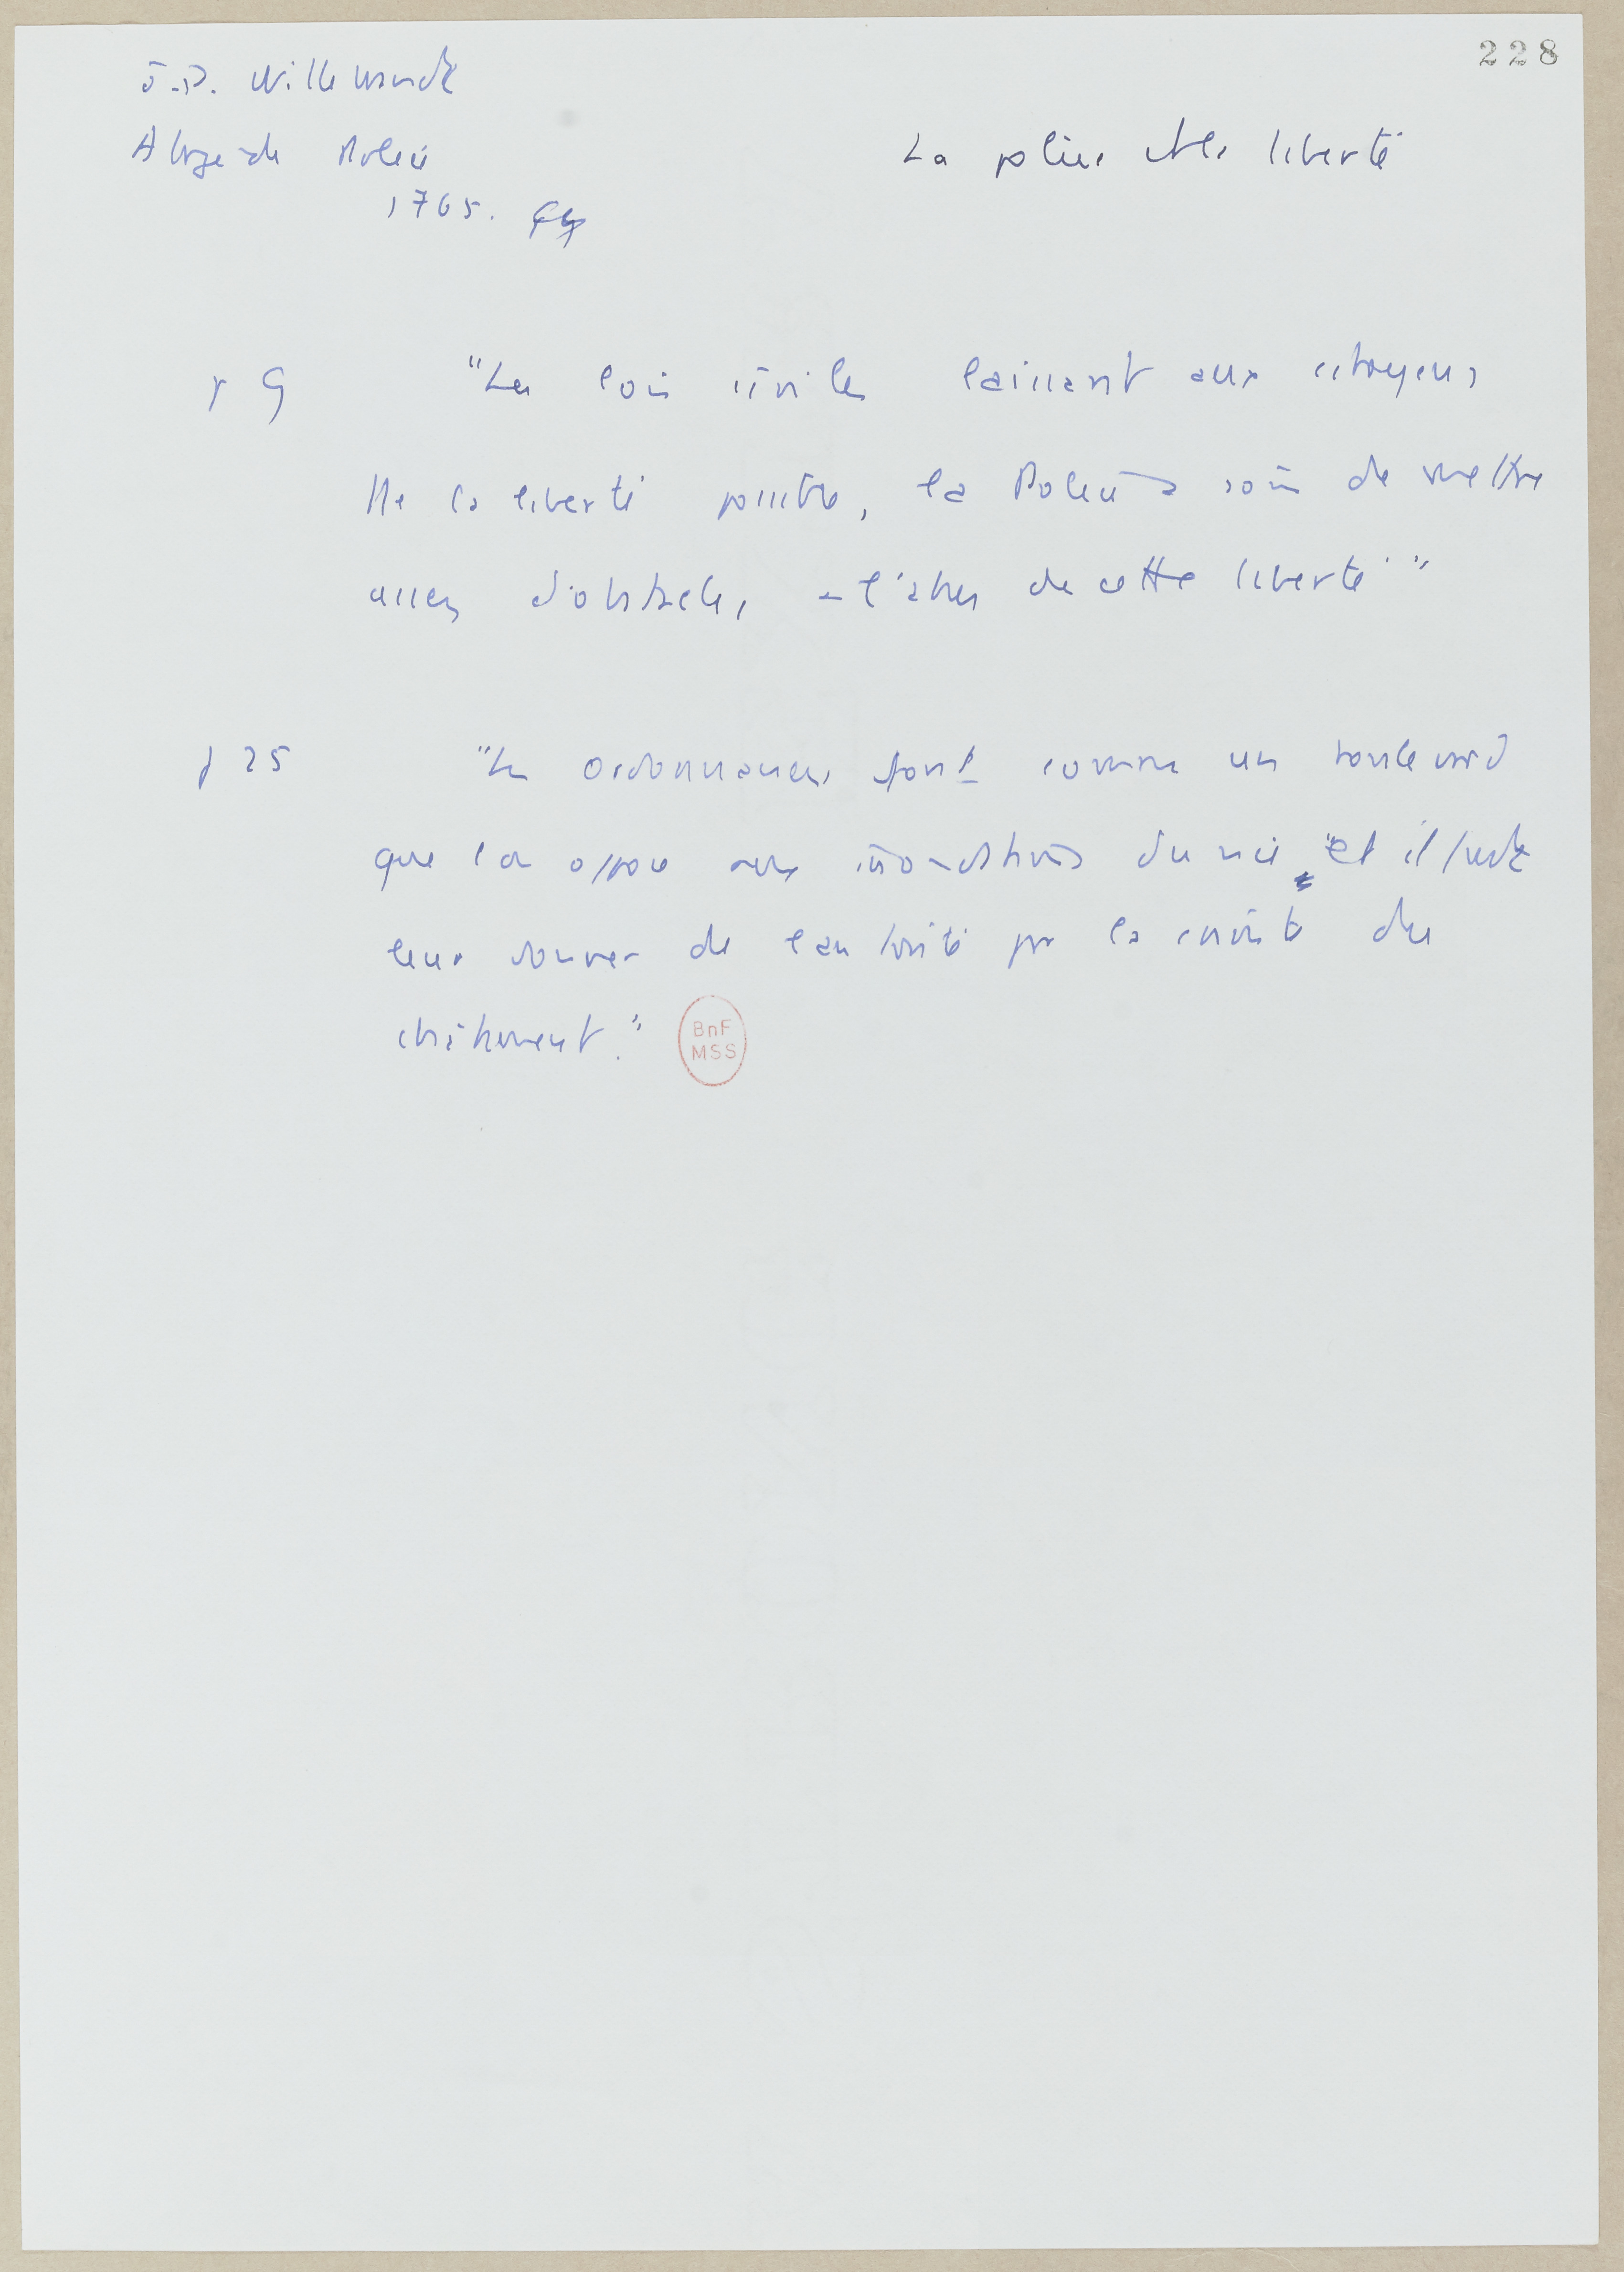 228
J.P. Willebrandt
Abrégé de Police
1765.
La police et la liberté
p 9 "Les lois civiles laissant aux citoyens
de la liberté, la Police a soin de mettre
assez d'obstacles à l'abus de cette liberté"
p 25 "Les ordonnances sont comme un boulevard
que l'on oppose aux inondations du vice et il faut
leur donner de l'autorité par la crainte du
châtiment."
BnF
MSS